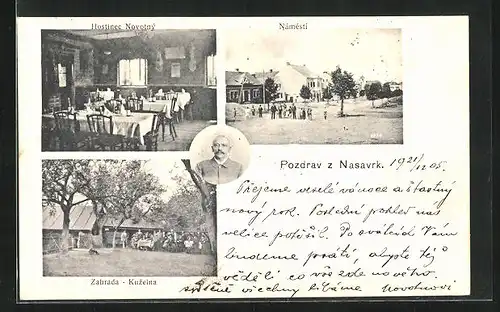 Hostinec Novotný
Náměstí
Pozdrav z Nasavrk. 1921/12 05.
Přejeme veselé vánoce a šťastný
nový rok. Poslední pohled nás
velice potěšil. Po svátcích Vám
budeme psáti, abyste též
věděli co vše zde nového.
Zahrada - Kuželna
srdečně všechny líbáme Novotnovi